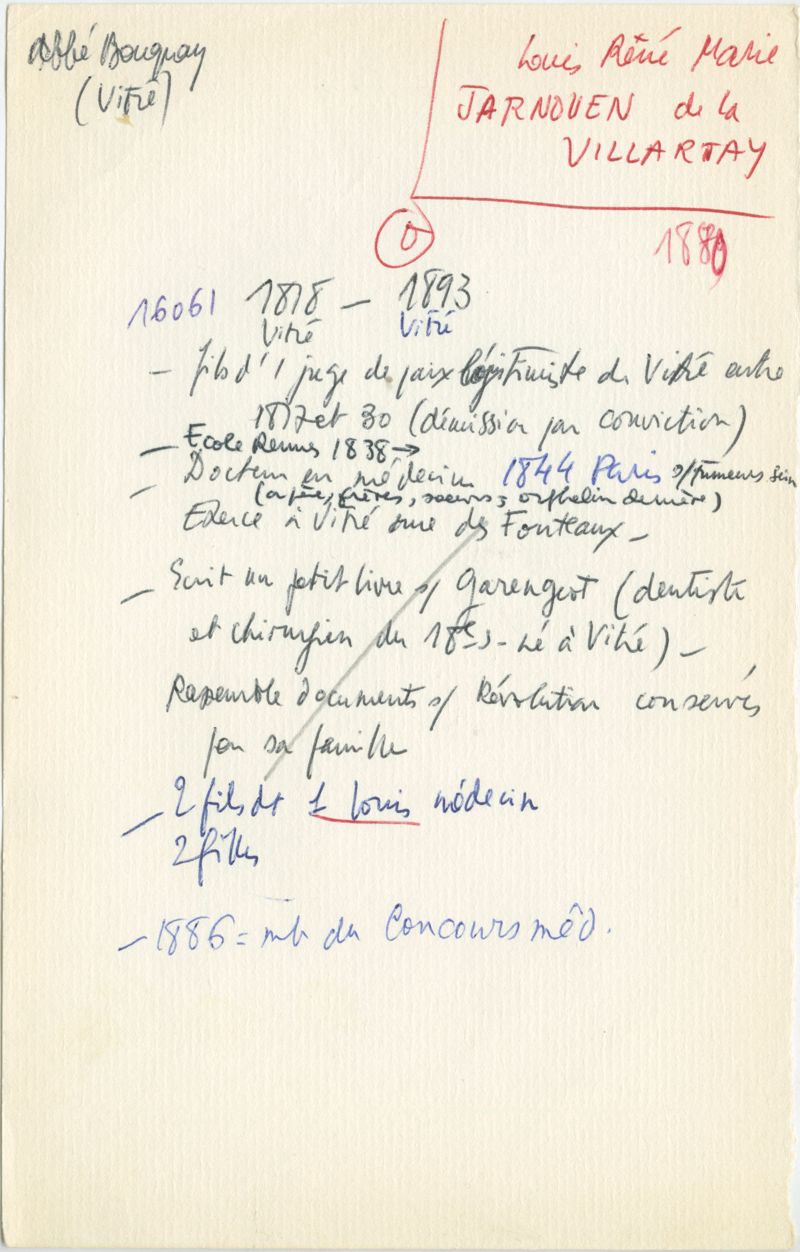 Abbé Bougnay
(Vitré)
Louis René Marie
JARNOUEN de la
VILLARTAY
0
1880
16061 1818 – 1893
Vitré Vitré
– fils d'1 juge de paix légitimiste de Vitré entre
1817 et 30 (démission par conviction)
– Ecole Rennes 1838 →
– Docteur en médecine 1844 Paris s/tumeurs sein
(à père, frères, soeurs ; orphelin de mère)
Exerce à Vitré rue des Fonteaux –
– Ecrit un petit livre s/ Garengeot (dentiste
et chirurgien du 18e s – né à Vitré) –
Rassemble documents s/ Révolution conservés
par sa famille
– 2 fils dt 1 Louis médecin
2 filles
– 1886 = mb du Concours méd.